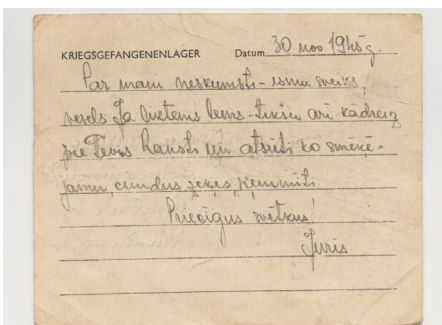 KRIEGSGEFANGENENLAGER Datum 30 nov 1945g.
Par mani neskumsti - esmu sveiks,
vesels Ja liktenis lems - tikšu arī kādreiz
pie Tevis Raksti un atsūti ko smēķē-
jamu, cimdus zeķes, ķemmīti.
Priecīgus svētkus!
Juris